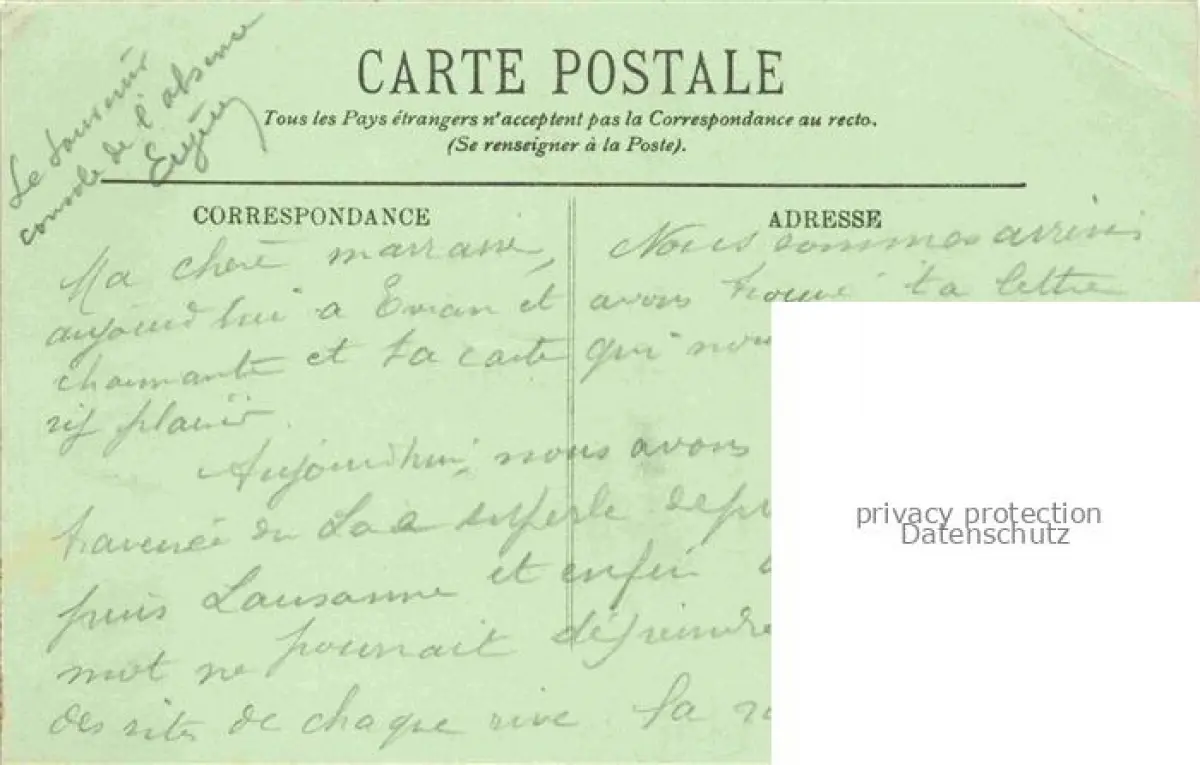 Le souvenir
console de l'absence
CARTE POSTALE
Tous les Pays étrangers n'acceptent pas la Correspondance au recto.
(Se renseigner à la Poste).
CORRESPONDANCE
ADRESSE
Ma chère marraine, Nous sommes arrivés
aujourd'hui à Evian et avons trouvé ta lettre
charmante et ta carte qui nou
vif plaisir.
Aujourd'hui, nous avons
traversée du Lac superbe depu
puis Lausanne et enfin
mot ne pourrait dépeindre
des sites de chaque rive. La
privacy protection
Datenschutz